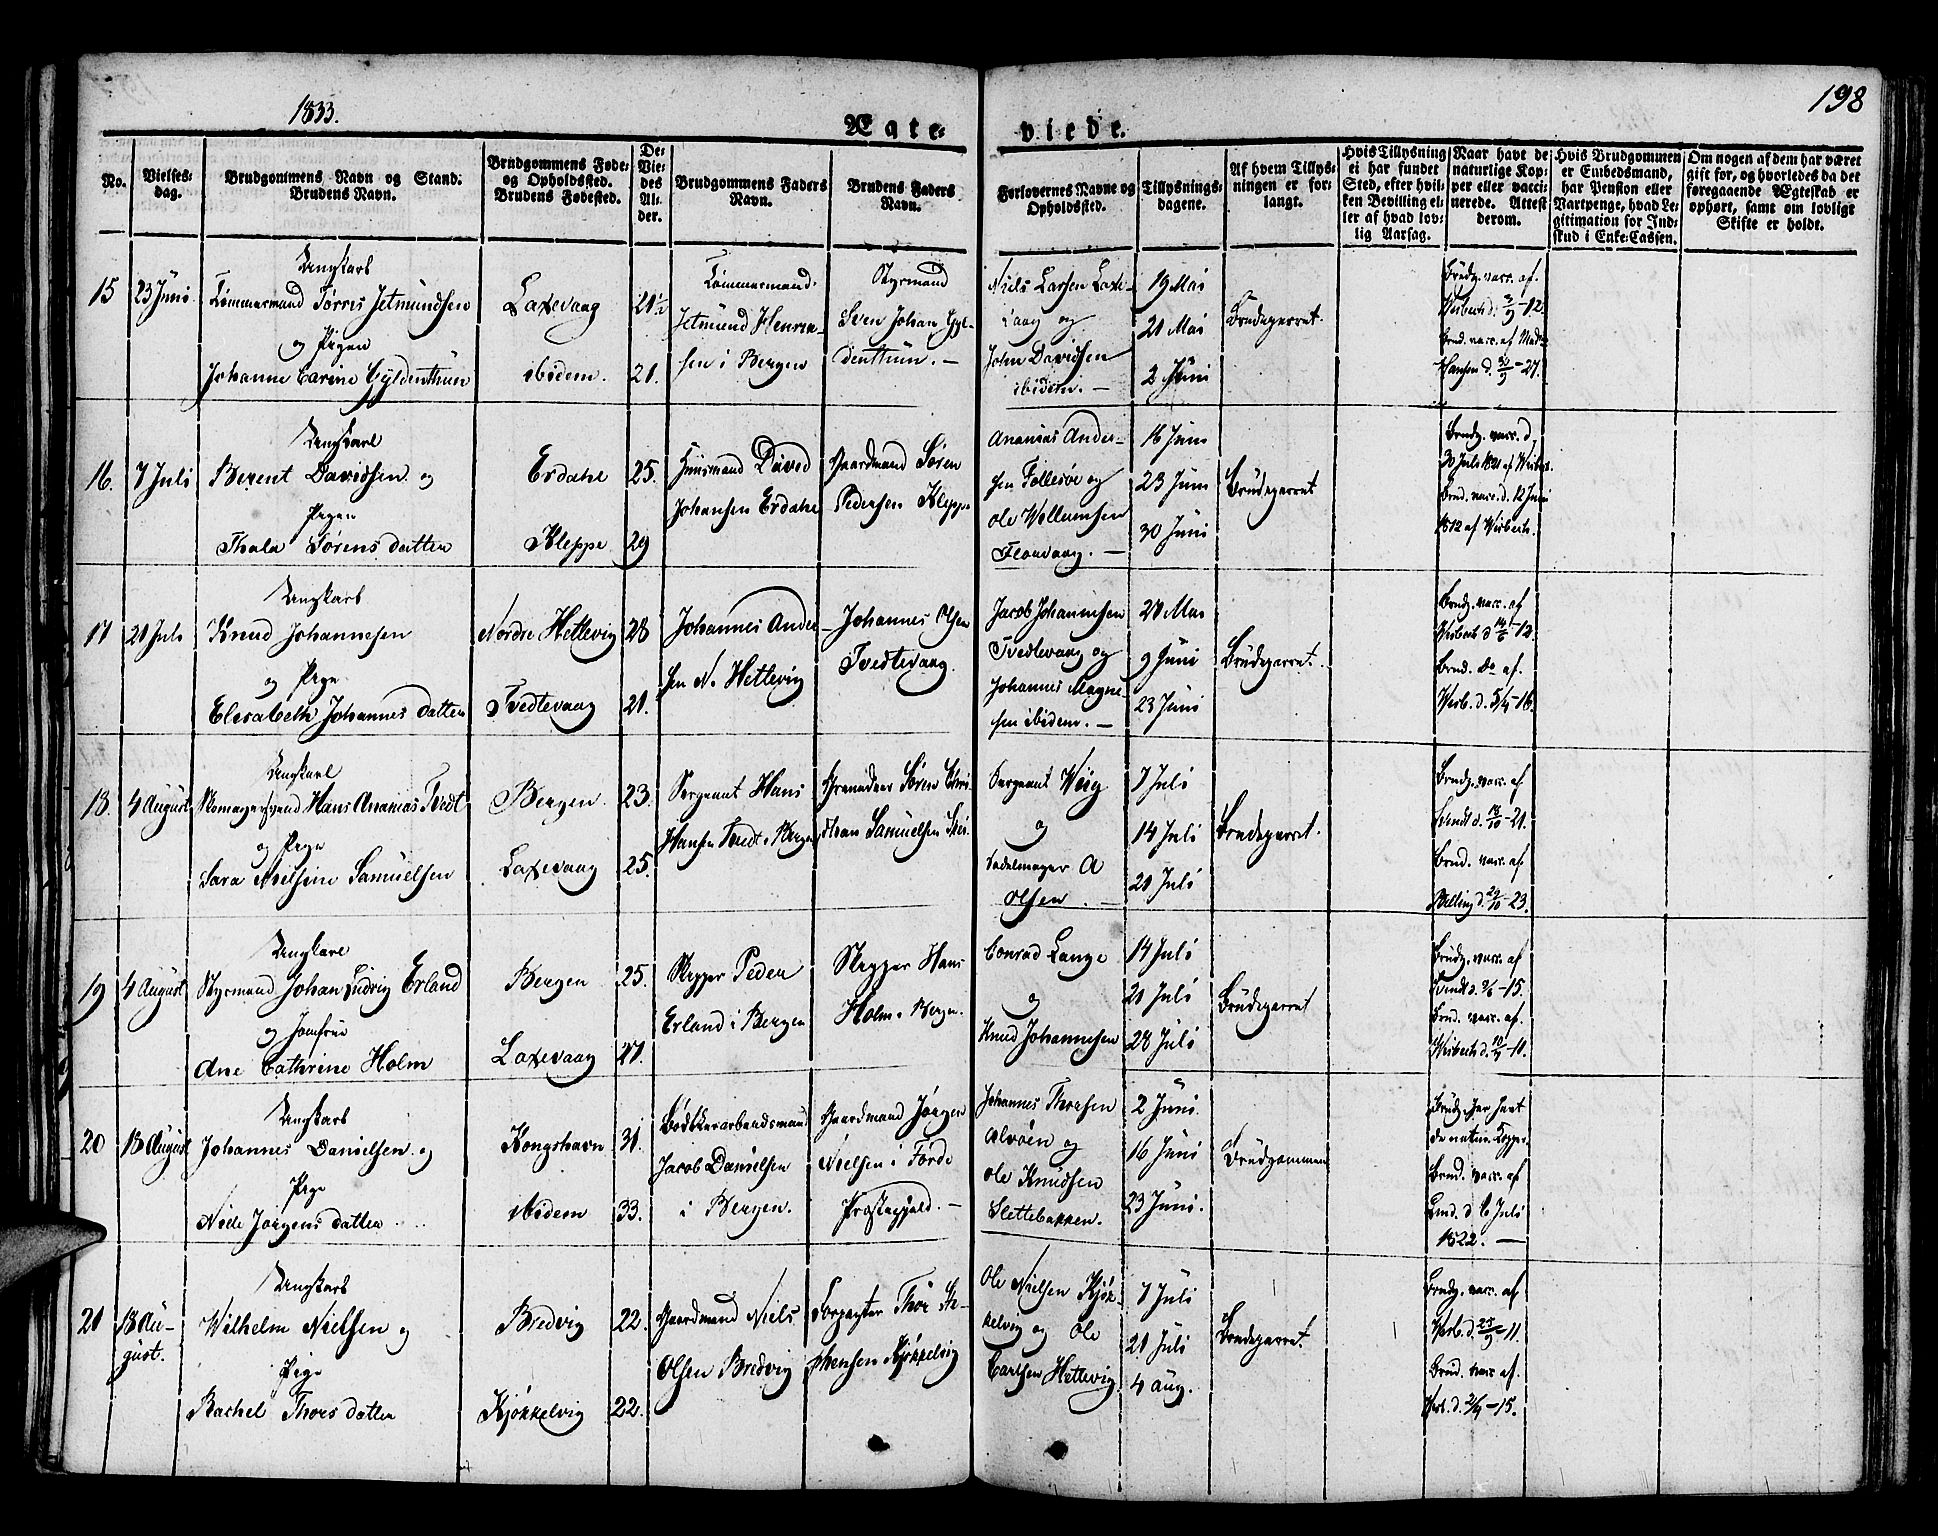 1833.
198
Ægte-
viede.
No.
Vielses-
dag.
Brudgommens Navn og Stand.
Brudens Navn.
Brudgommens Føde-
og Opholdssted.
Brudens Fødested.
De
Vie-
des
Al-
der.
Brudgommens Faders
Navn.
Brudens Faders
Navn.
Forlovernes Navne og
Opholdssted.
Tillysnings-
dagene.
Af hvem Tillys-
ningen er for-
langt.
Hvis Tillysning
ei har fundet
Sted, efter hvil-
ken Bevilling el-
ler af hvad lov-
lig Aarsag.
Naar havt de
naturlige Kop-
per eller vacci-
nerede. Attest
derom.
Hvis Brudgommen
er Embedsmand,
har Pension eller
Vartpenge, hvad Le-
gitimation for Ind-
skud i Enke-Cassen.
Om nogen af dem har været
gift før, og hvorledes da det
foregaaende Ægteskab er
ophørt, samt om lovligt
Skifte er holdt.
15
23 Juni
Ungkarl
Tømmermand Tørres Jetmundsen
og Pigen
Johanne Carine Gyldenthun
Laxevaag
ibidem.
21½
21.
Tømmermand
Jetmund Henrik-
sen i Bergen
Styrmand
Sven Johan Gyl-
denthun. —
Niels Larsen Laxe-
vaag og
John Davidsen
ibidem. —
19 Mai
21 Mai
2 Juni
Brudeparret.
Brudg. vacc. af
Wisbech d. 3/9-12.
Brud. vacc. af Mad.
Hansen d.
16.
7 Juli
Ungkarl
Berent Davidsen og
Pigen
Thala Sørens datter
Erdahl
Kleppe
25.
29
Huusmand David
Johansen Erdahl
Gaardmand Søren
Pedersen Kleppe
Ananias Ander-
sen Follesøe og
Ole Wollumsen
Floevaag. —
16 Juni
23 Juni
30 Juni
Brudeparret
Brudg. vacc. d.
30 Juli 1821 af Wisbec.
Brud. vacc. d. 12 Juni
1812 af Wisbech.
17
21 Juli
Ungkarl
Knud Johannesen
og Pige
Elisabeth Johannes datter
Nordre Hettevig
Tvedtevaag
28
21.
Johannes Ander-
sen N. Hettevig
Johannes Olsen
Tvedtevaag.
Jacob Johannesen
Tvedtevaag og
Johannes Magne-
sen ibidem. —
28 Mai
9 Juni
23 Juni
Brudeparret.
Brudg. vacc. af
Wisbech d. 14/6-12.
Brud. do af
Wisb. d. 5/4-16.
18.
4 August
Ungkarl
Skomagersvend Hans Ananias Tvedt
og Pige
Sara Nielsine Samuelsen
Bergen.
Laxevaag
23.
25.
Sergeant Hans
Hansen Tvedt i Bergen
Grenadeer Søren Chri-
stian Samuelsen
Sergeant Wiig
og
Sadelmager A
Olsen. —
7 Juli
14 Juli
21 Juli
Brudeparret.
Brudg. vacc. af
Wendt d. 18/10-21.
Brud. vacc. af
Welling d. 29/10-23.
19
4 August
Ungkarl
Styrmand Johan Ludvig Erland
og Jomfrue
Ane Cathrine Holm
Bergen
Laxevaag
25.
27.
Skipper Peder
Erland i Bergen
Skipper Hans
Holm i Bergen.
Conrad Lange
og
Knud Johannesen
14 Juli
21 Juli
28 Juli
Brudeparret
Brudg. vacc. af
Wendt d. 9/6-15.
Brud. vacc. af.
Wisbech d. 10/9-11.
20
18 August
Ungkarl
Johannes Danielsen og
Pige
Nille Jørgens datter
Kongshavn
ibidem
31.
33.
Bødtkerarbeidsmand
Jacob Danielsen
i Bergen.
Gaardmand Jørgen
Nielsen i Førde
Præstegjeld. —
Johannes Thoresen
Alvøen og
Ole Knudsen
Slettebakken.
2 Juni.
16 Juni
23 Juni.
Brudgommen
Brudg. har havt
de natur. Kopper.
Brud. vacc. af
Lind. d. 6 Juli
1822. —
21
18 Au-
gust.
Ungkarl
Wilhelm Nielsen og
Pige
Rachel Thoes datter
Bredvig
Kjøkkelvig
22.
22.
Gaardmand Niels
Olsen Bredvig
Forpagter Thoe St-
phensen Kjøkkelvig
Ole Nielsen Kjøk-
kelvig og Ole
Carlsen Hettevig.
7 Juli
21 Juli
4 Aug.
Brudeparret.
Brudg. vacc. af
Wisb. d. 25/9-11.
Brud. vacc. af.
Wisb. d. 2/9-15.